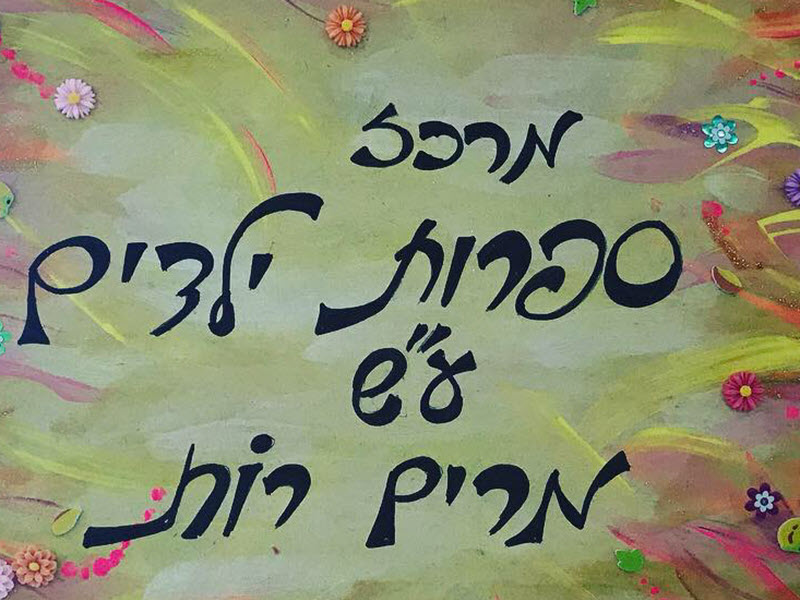 מרכז
ספרות ילדים
ע"ש
מרים רוֹת